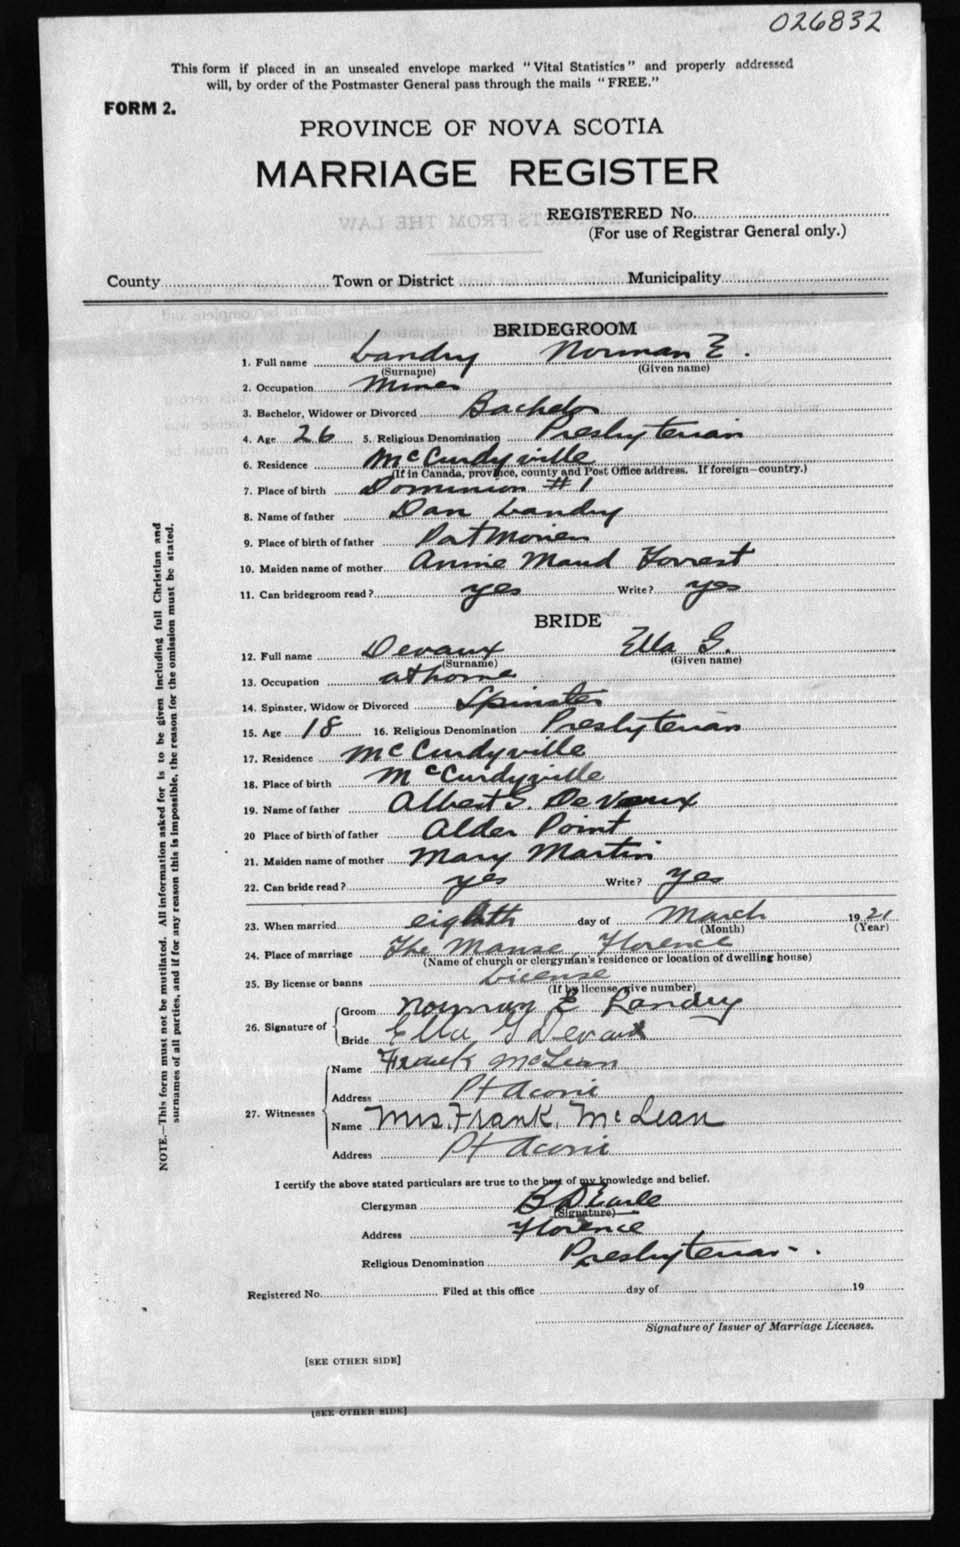 026832
This form if placed in an unsealed envelope marked "Vital Statistics" and properly addressed
will, by order of the Postmaster General pass through the mails "FREE."
FORM 2.
PROVINCE OF NOVA SCOTIA
MARRIAGE REGISTER
REGISTERED No.
(For use of Registrar General only.)
County Town or District Municipality
BRIDEGROOM
1. Full name Landry Norman E.
(Surname) (Given name)
2. Occupation Miner
3. Bachelor, Widower or Divorced Bachelor
4. Age 26 5. Religious Denomination Presbyterian
6. Residence McCurdyville
(If in Canada, province, county and Post Office address. If foreign—country.)
7. Place of birth Dominion #1
8. Name of father Dan Landry
9. Place of birth of father Port Morien
10. Maiden name of mother Annie Maud Forrest
11. Can bridegroom read? yes Write? yes
BRIDE
12. Full name Devaux Ella G.
(Surname) (Given name)
13. Occupation at home
14. Spinster, Widow or Divorced Spinster
15. Age 18 16. Religious Denomination Presbyterian
17. Residence McCurdyville
18. Place of birth McCurdyville
19. Name of father Albert G. DeVeaux
20 Place of birth of father Alder Point
21. Maiden name of mother Mary Martin
22. Can bride read? yes Write? yes
23. When married eighth day of March 1921
(Month) (Year)
24. Place of marriage The Manse Florence
(Name of church or clergyman's residence or location of dwelling house)
25. By license or banns License
(If by license, give number)
26. Signature of Groom Norman E Landry
Bride Ella G Devaux
27. Witnesses Name Frank McLean
Address Pt Aconi
Name Mrs. Frank. McLean
Address Pt Aconi
I certify the above stated particulars are true to the best of my knowledge and belief.
Clergyman B D Earle
(Signature)
Address Florence
Religious Denomination Presbyterian.
Registered No. Filed at this office day of 19
Signature of Issuer of Marriage Licenses.
[SEE OTHER SIDE]
[SEE OTHER SIDE]
NOTE.—This form must not be mutilated. All information asked for is to be given including full Christian and
surnames of all parties, and if for any reason this is impossible, the reason for the omission must be stated.